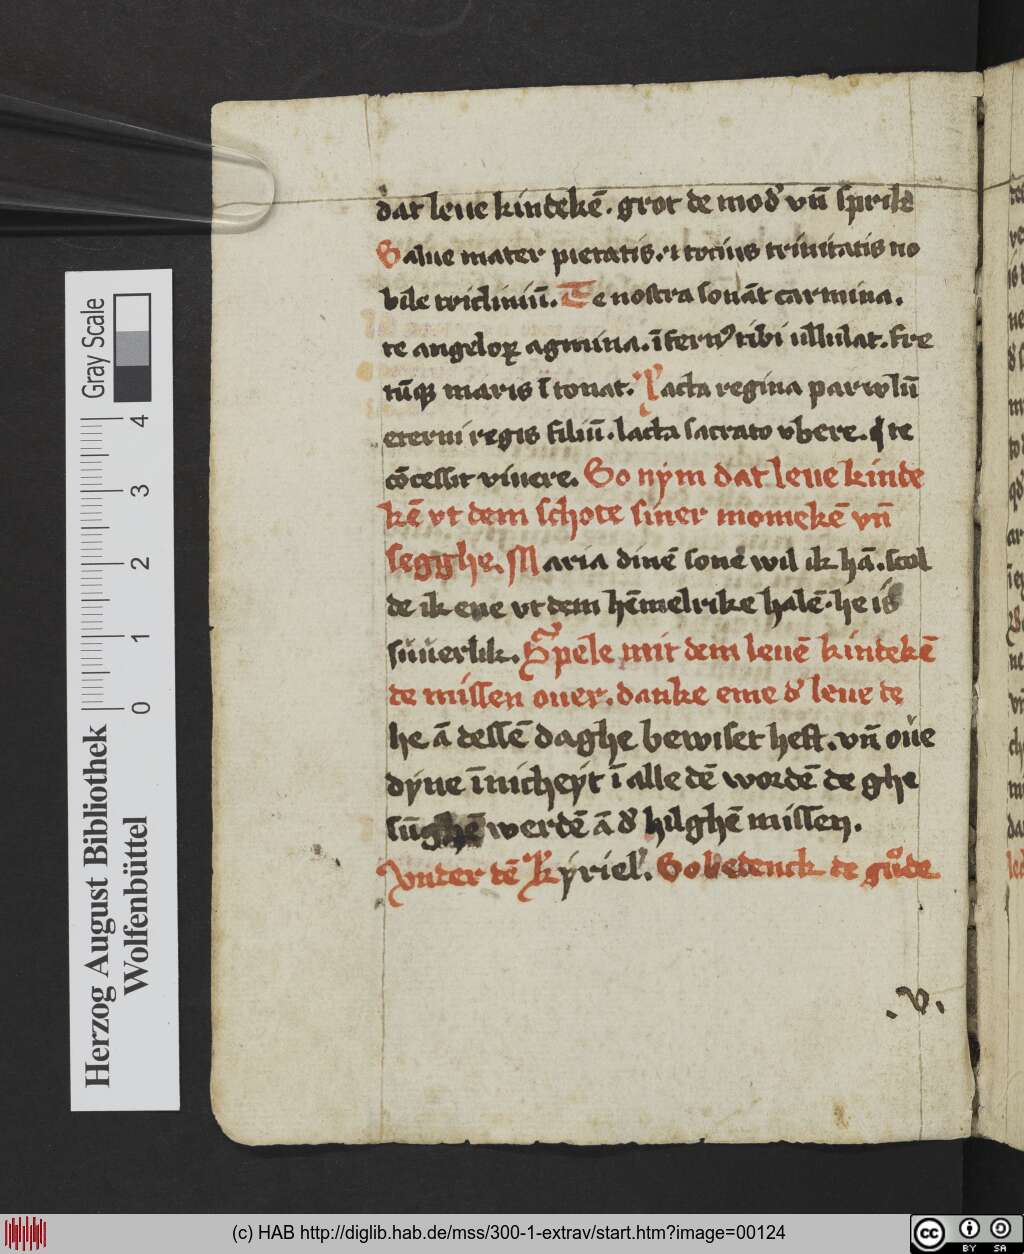 dat leue kindekē. grot de mod' vn̄ sprik
Salue mater pietatis. et tocius trinitatis no
bile tricliniū. Te nostra sonāt carmina.
te angeloꝝ agmina. īfern9 tibi ullulat. fre
tūqꝫ maris ītonat. Lacta regina parwlū
eterni regis filiū. lacta sacrato vbere. q te
cōcessit viuere. So nym dat leue kinde
kē vt dem schote siner momekē vn̄
segghe. Maria dinē sone wil ik hā. scol
de ik ene vt dem hēmelrike halē. he is
suuerlik. Spele mit dem leuē kindekē
de missen ouer. danke eme d' leue de
he ā dessē daghe bewiset heft. vn̄ oue
dyne īnicheyt ī alle dē wordē de ghe
sūghē werdē ā d' hilghē missen.
Vnder dē kyriel'. So bedenck de gůde
.v.
Herzog August Bibliothek
Wolfenbüttel
0 1 2 3 4
Gray Scale
(c) HAB http://diglib.hab.de/mss/300-1-extrav/start.htm?image=00124
cc BY SA